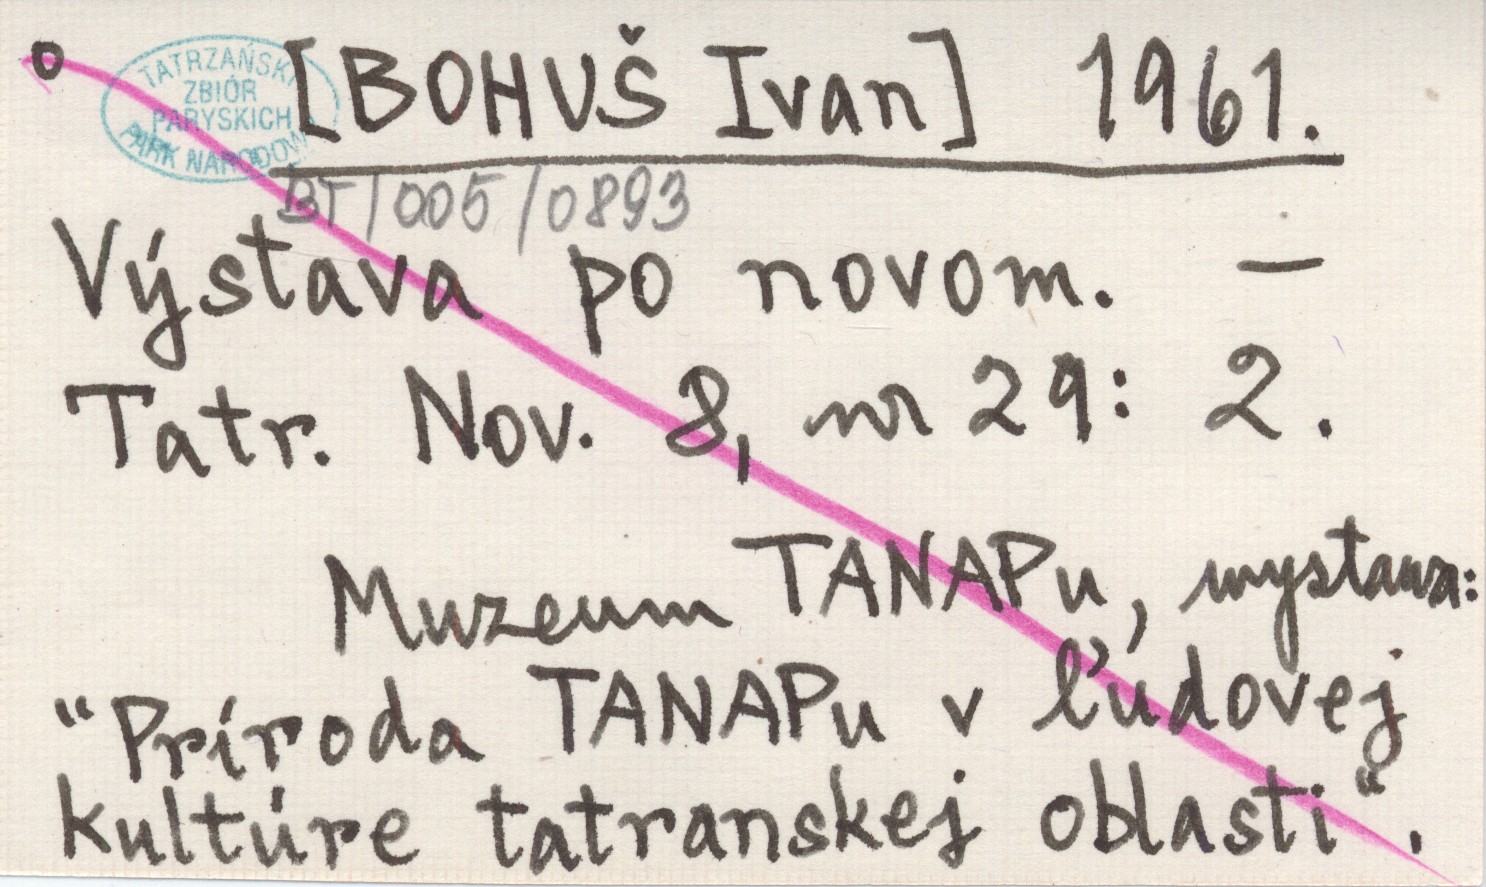 o [BOHUŠ Ivan] 1961.
TATRZAŃSKI
ZBIÓR
PARYSKICH
PARK NARODOW
BT/005/0893
Výstava po novom. —
Tatr. Nov. 8, nr 29: 2.
Muzeum TANAPu, wystawa:
“Príroda TANAPu v ľúdovej
kultúre tatranskej oblasti“.